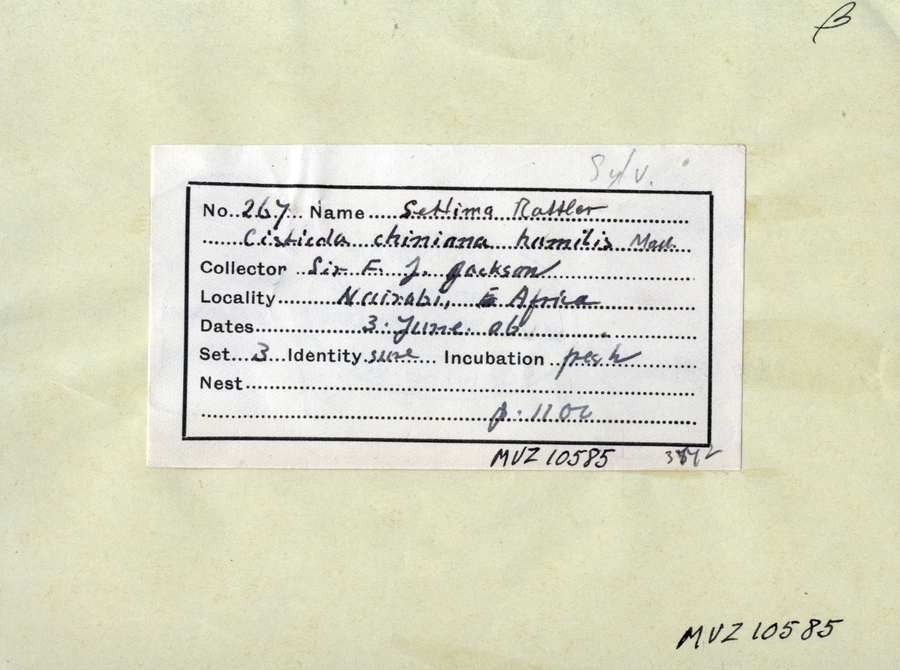 β
Syl v.
No. 267 Name Settima Rattler
Cisticola chiniana humilis Mad.
Collector Sir F. J. Jackson
Locality Nairobi, E Africa
Dates 3. June. 06
Set 3 Identity sure Incubation fresh
Nest
p. 1106
MVZ 10585
MVZ 10585